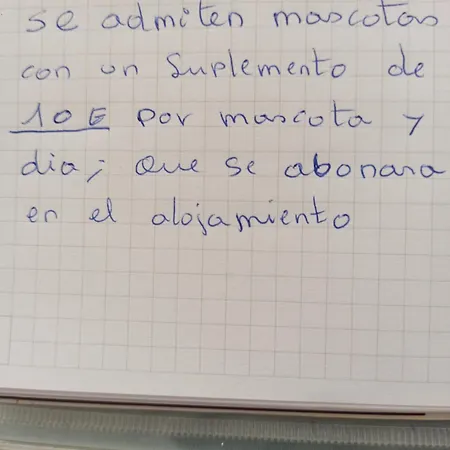 se admiten mascotas
con un Suplemento de
10 € por mascota y
dia; Que se abonara
en el alojamiento